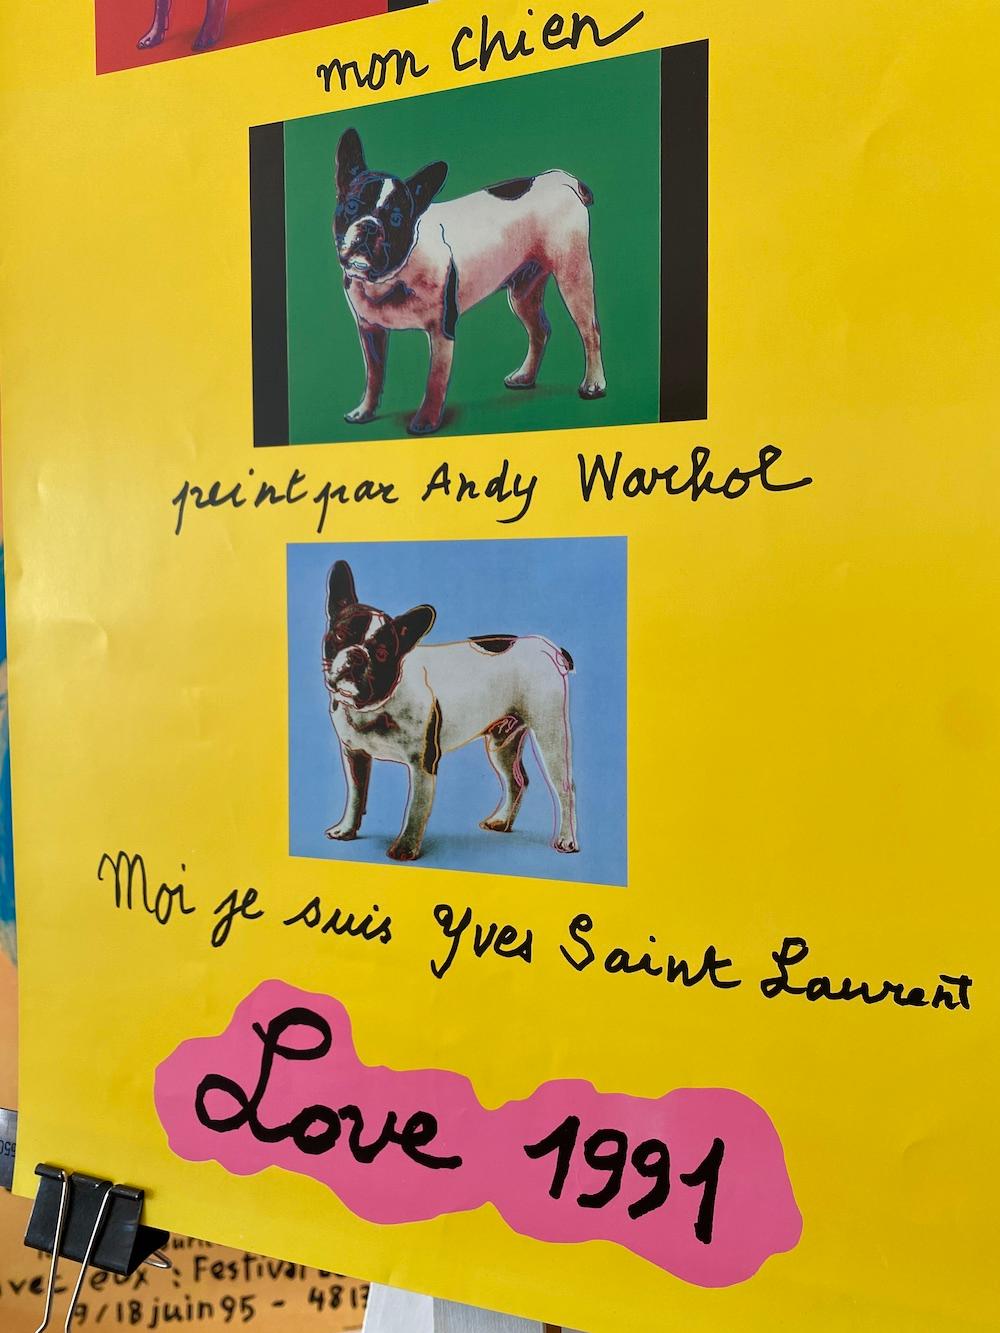 mon chien
peint par Andy Warhol
Moi je suis Yves Saint Laurent
Love 1991
avec eux : Festival
9/18 juin 95 - 4813